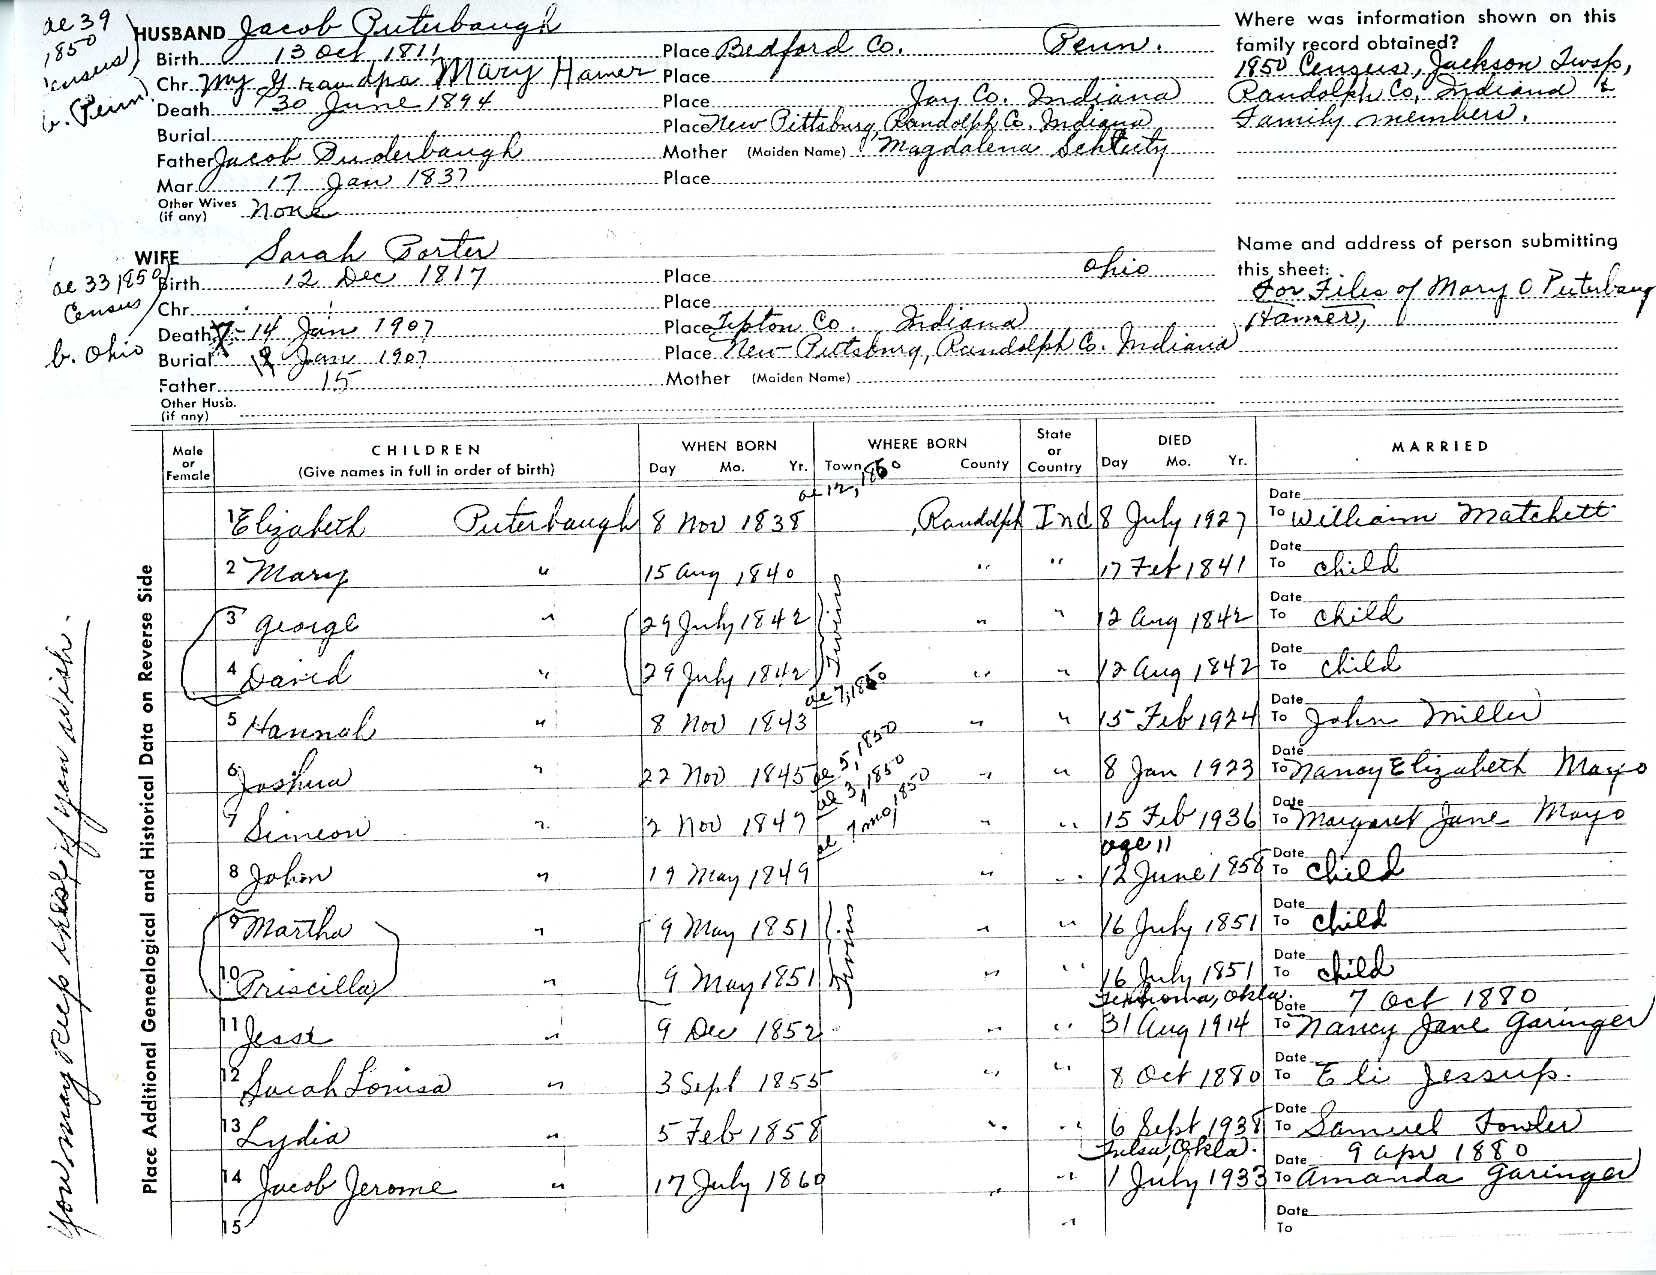 ae 39
1850
census
b. Penn.
HUSBAND Jacob Puterbaugh
Birth 13 Oct 1811 Place Bedford Co. Penn.
Chr. My Grandpa Mary Hamer Place
Death 30 June 1894 Place Jay Co. Indiana
Burial Place New Pittsburg, Randolph Co. Indiana
Father Jacob Puderbaugh Mother (Maiden Name) Magdalena
Mar. 17 Jan 1837 Place
Other Wives
(if any) None
Where was information shown on this
family record obtained?
1850 Census, Jackson Twsp,
Randolph Co, Indiana &
Family members.
WIFE Sarah Porter
ae 33 1850
Census
b. Ohio
Birth 12 Dec 1817 Place Ohio
Chr. Place
Death 14 Jan 1907 Place Tipton Co. Indiana
Burial Jan 1907 Place New Pittsburg, Randolph Co. Indiana
Father 15 Mother (Maiden Name)
Other Husb.
(if any)
Name and address of person submitting
this sheet:
For Files of Mary O Puterbaug
Hamer,
Male or Female CHILDREN (Give names in full in order of birth) WHEN BORN Day Mo. Yr. WHERE BORN Town County State or Country DIED Day Mo. Yr. MARRIED
ae 12, 1850
1 Elizabeth Puterbaugh 8 Nov 1838 Randolph Ind 8 July 1927 Date To William Matchett
2 Mary " 15 Aug 1840 " " 17 Feb 1841 Date To child
3 George " 29 July 1842 Twins " " 12 Aug 1842 Date To child
4 David " 29 July 1842 " " 12 Aug 1842 Date To child
ae 7, 1850
5 Hannah " 8 Nov 1843 " " 15 Feb 1924 Date To John Miller
6 Joshua " 22 Nov 1845 ae 5, 1850 " " 8 Jan 1923 Date To Nancy Elizabeth Mayo
7 Simeon " 2 Nov 1847 ae 3, 1850 " " 15 Feb 1936 Date To Margaret Jane Mayo
ae 7 mo, 1850
age 11
8 John " 19 May 1849 " " 12 June 1858 Date To child
9 Martha " 9 May 1851 Twins " " 16 July 1851 Date To child
10 Priscilla " 9 May 1851 " " 16 July 1851 Date To child
Texhoma, Okla. Date 7 Oct 1880
11 Jesse " 9 Dec 1852 " " 31 Aug 1914 To Nancy Jane Garinger
12 Sarah Louisa " 3 Sept 1855 " " 8 Oct 1880 Date To Eli Jessup.
13 Lydia " 5 Feb 1858 " " 6 Sept 1938 Date To Samuel Fowler
Tulsa, Okla. Date 9 Apr 1880
14 Jacob Jerome " 17 July 1860 " " 1 July 1933 To Amanda Garinger
15 " Date To
Place Additional Genealogical and Historical Data on Reverse Side
You may keep this if you wish.